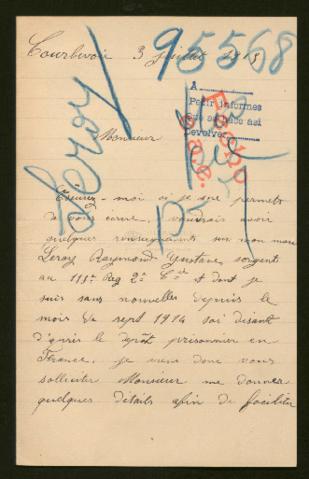 Courbevoie 3 juillet 1915
95568
A
Pedir informes
que se dice asi
Devolver
Leroy
Monsieur
Excusez-moi si je me permets
de vous écrire, voudrais avoir
quelques renseignements sur mon mari
Leroy Raymond Gustave sergent
au 113e Reg 2e Cie et dont je
suis sans nouvelles depuis le
mois de sept 1914 soi disant
d'après le depôt prisonnier en
France, je viens donc vous
solliciter Monsieur me donner
quelques détails afin de faciliter